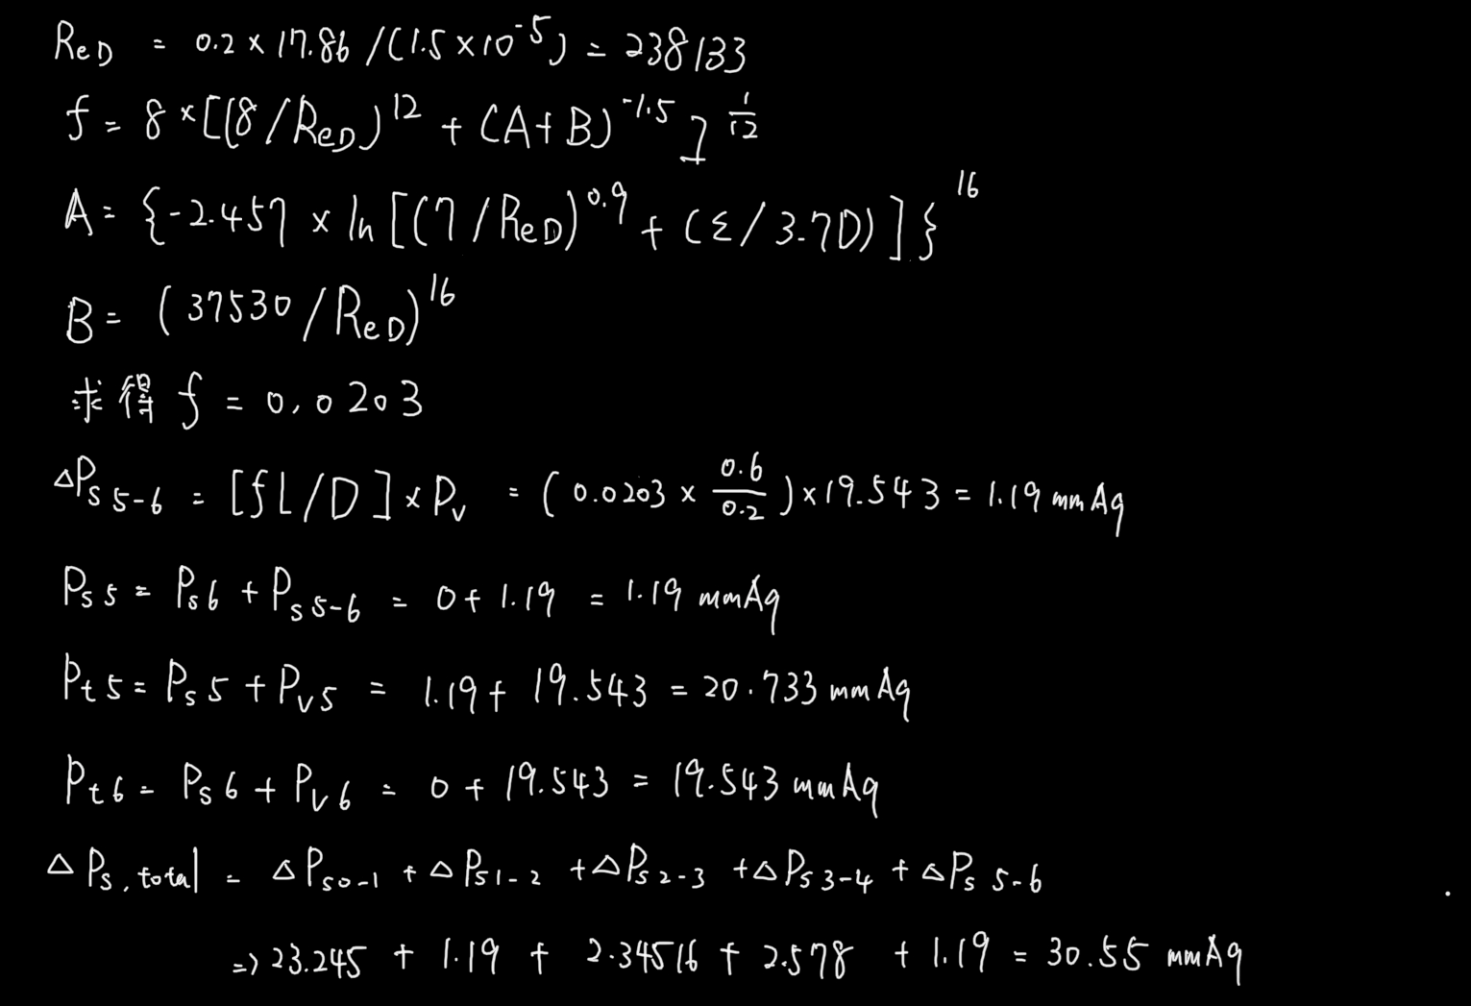 ReD = 0.2 × 17.86 / (1.5 × 10⁻⁵) = 238133
f = 8 × [(8/ReD)¹² + (A+B)⁻¹·⁵]^(1/12)
A = {-2.457 × ln[(7/ReD)^0.9 + (ε/3.7D)]}¹⁶
B = (37530/ReD)¹⁶
求得 f = 0.0203
△Ps 5-6 = [fL/D] × Pv = (0.0203 × 0.6/0.2) × 19.543 = 1.19 mmAq
Ps5 = Ps6 + Ps5-6 = 0 + 1.19 = 1.19 mmAq
Pt5 = Ps5 + Pv5 = 1.19 + 19.543 = 20.733 mmAq
Pt6 = Ps6 + Pv6 = 0 + 19.543 = 19.543 mmAq
△Ps,total = △Ps0-1 + △Ps1-2 + △Ps2-3 + △Ps3-4 + △Ps 5-6
=> 23.245 + 1.19 + 2.34516 + 2.578 + 1.19 = 30.55 mmAq